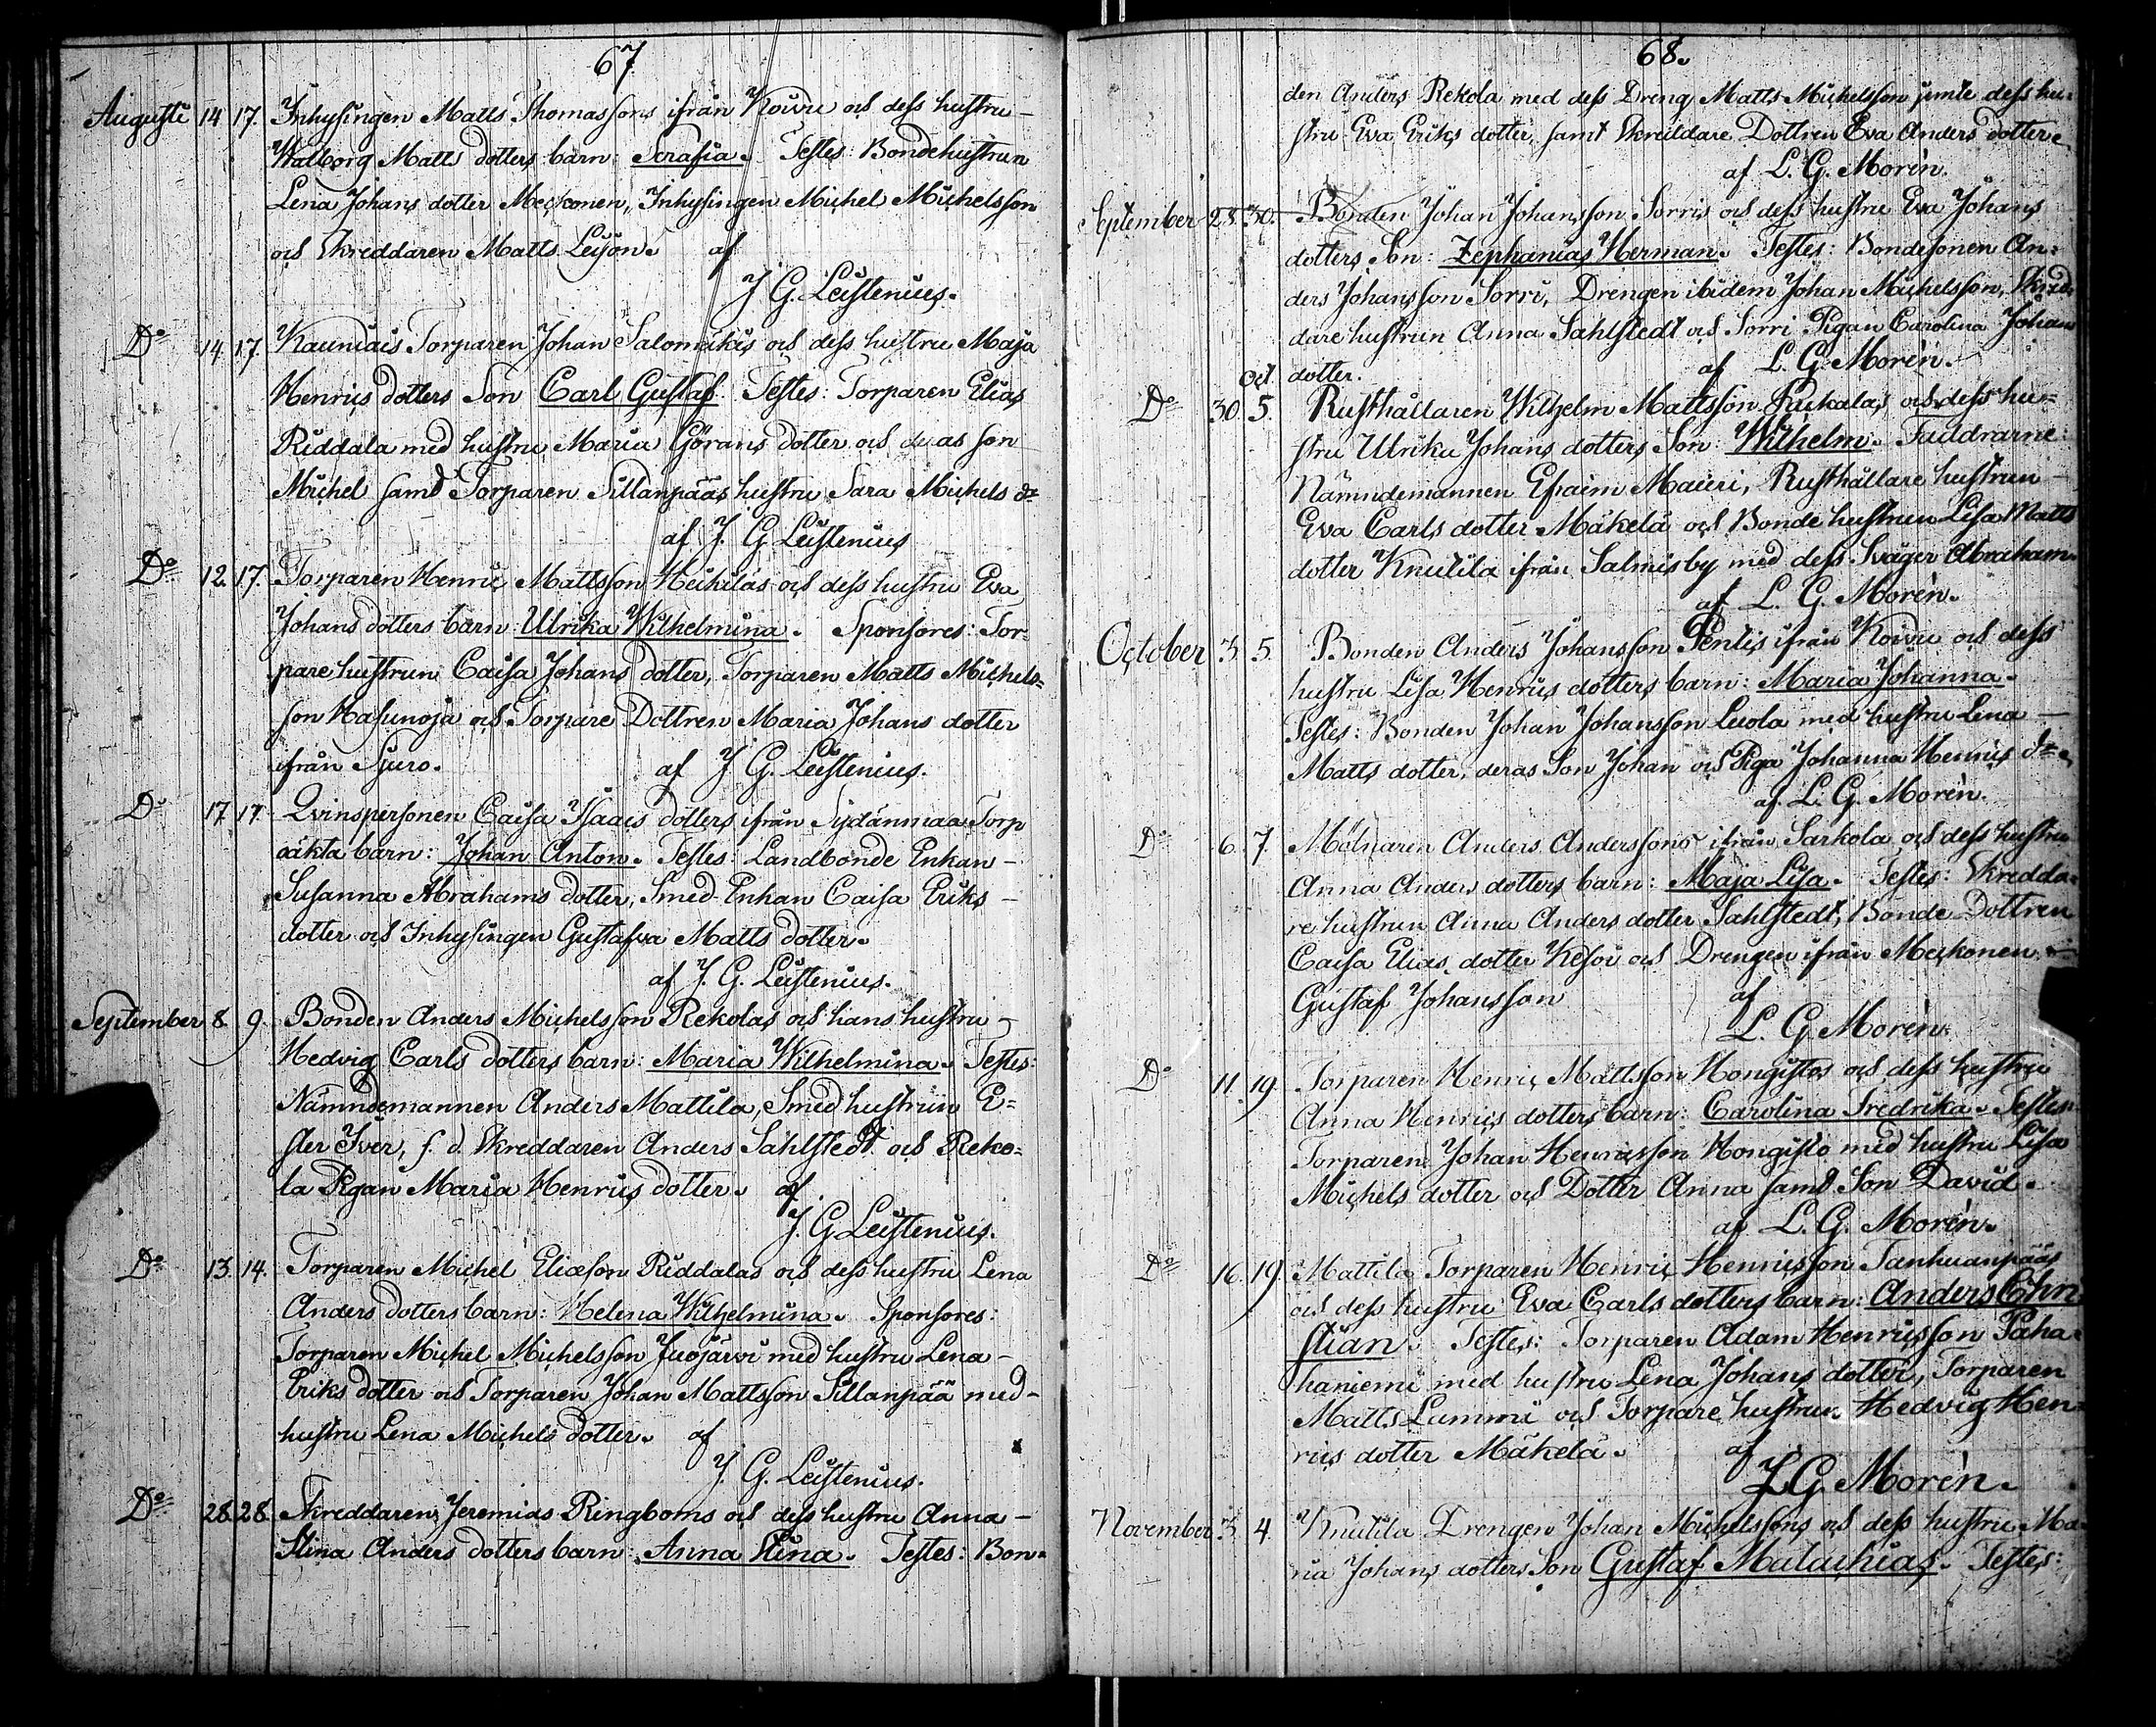 67
Augusti 14 17. Inhysingen Matts Thomassons ifrån Koivu och dess hustru -
Walborg Matts dotters barn: Serafia. Testes: Bondehustrun
Lena Johans dotter Meckonen, Inhysingen Michel Michelsson
och Skreddaren Matts Leijon. af
J G. Leistenius.
Do 14. 17. Kauniais Torparen Johan Salomäkis och dess hustru Maja
Henrics dotters Son Carl Gustaf. Testes: Torparen Elias
Riddala med hustru Maria Görans dotter och deras son
Michel samt Torparen Sillanpääs hustru Sara Michels dr
af J. G Leistenius
Do 12. 17. Torparen Henric Mattsson Heikiläs och dess hustru Eva
Johans dotters barn: Ulrika Wilhelmina. Sponsores: Tor-
parehustrun Caisa Johans dotter, Torparen Matts Michels-
son Hasunoja och Torpare Dottren Maria Johans dotter
ifrån Sjuro. af J G. Leistenius.
Do 17. 17. Qvinspersonen Caisa Isaacs dotters ifrån Sydänmaa Torp
oäkta barn: Johan Anton. Testes: Landbonde Enkan -
Susanna Abrahams dotter, Smed Enkan Caisa Eriks -
dotter och Inhysingen Gustafva Matts dotter.
af J. G. Leistenius.
September 8. 9. Bonden Anders Michelsson Rekolas och hans hustru -
Hedvig Carls dotters barn: Maria Wilhelmina. Testes:
Nämndemannen Anders Mattila, Smed hustrun E-
ster Iver, f. d. Skreddaren Anders Sahlstedt och Reko-
la Pigan Maria Henrics dotter. af
J. G Leistenius.
Do 13. 14. Torparen Michel Eliæson Riddalas och dess hustru Lena
Anders dotters barn: Helena Wilhelmina. Sponsores:
Torparen Michel Michelsson Isojärvi med hustru Lena -
Eriks dotter och Torparen Johan Mattsson Sillanpää med -
hustru Lena Michels dotter. af
J. G. Leistenius.
Do 28. 28. Skreddaren Jeremias Ringboms och dess hustru Anna -
Stina Anders dotters barn: Anna Stina. Testes: Bon-
68.
den Anders Rekola med dess Dreng Matts Michelsson jemte dess hu-
stru Eva Eriks dotter, samt Skreddare Dottren Eva Anders dotter.
af L. G. Morén.
September 28. 30. Bonden Johan Johansson Sorris och dess hustru Eva Johans
dotters Son: Zephanias Herman. Testes: Bondesonen An-
ders Johansson Sorri, Drengen ibidem Johan Michelsson, Skred-
dare hustrun Anna Sahlstedt och Sorri Pigan Carolina Johans
dotter. af L. G. Morén.
Oct
Do 30. 5. Rusthållaren Wilhelm Mattsson Pukalas och dess hu-
stru Ulrika Johans dotters Son: Wilhelm. Faddrarne:
Nämndemannen Efraim Maieri, Rusthållare hustrun -
Eva Carls dotter Mäkelä och Bonde hustrun Lisa Matts
dotter Knutila ifrån Salmis by med dess Svåger Abraham.
af L. G. Morén.
October 3. 5. Bonden Anders Johansson Pentis ifrån Koivu och dess
hustru Lisa Henrics dotters barn: Maria Johanna.
Testes: Bonden Johan Johansson Luola med hustru Lena -
Matts dotter, deras Son Johan och Piga Johanna Henrics dr.
af. L. G. Morén.
Do 6. 7. Mölnaren Anders Anderssons ifrån Sarkola och dess hustru
Anna Anders dotters barn: Maja Lisa. Testes: Skredda-
re hustrun Anna Anders dotter Sahlstedt, Bonde Dottren
Caisa Elias dotter Kesoi och Drengen ifrån Meckonen -
Gustaf Johansson af
L. G. Morén.
Do 11. 19. Torparen Henric Mattsson Hongistos och dess hustru
Anna Henrics dotters barn: Carolina Fredrika. Testes:
Torparen Johan Henricsson Hongisto med hustru Lisa
Michels dotter och Dotter Anna samt Son David.
af L. G. Morén.
Do 16. 19. Mattila Torparen Henric Henricsson Tanhuanpääs
och dess hustru Eva Carls dotters barn: Anders Chri-
stian. Testes: Torparen Adam Henricsson Paha-
haniemi med hustru Lena Johans dotter, Torparen
Matts Lummi och Torpare hustrun Hedvig Hen-
rics dotter Mäkelä. af
L G. Morén.
November 3. 4. Knutila Drengen Johan Michelssons och dess hustru Ma-
ria Johans dotters Son Gustaf Malachias. Testes: